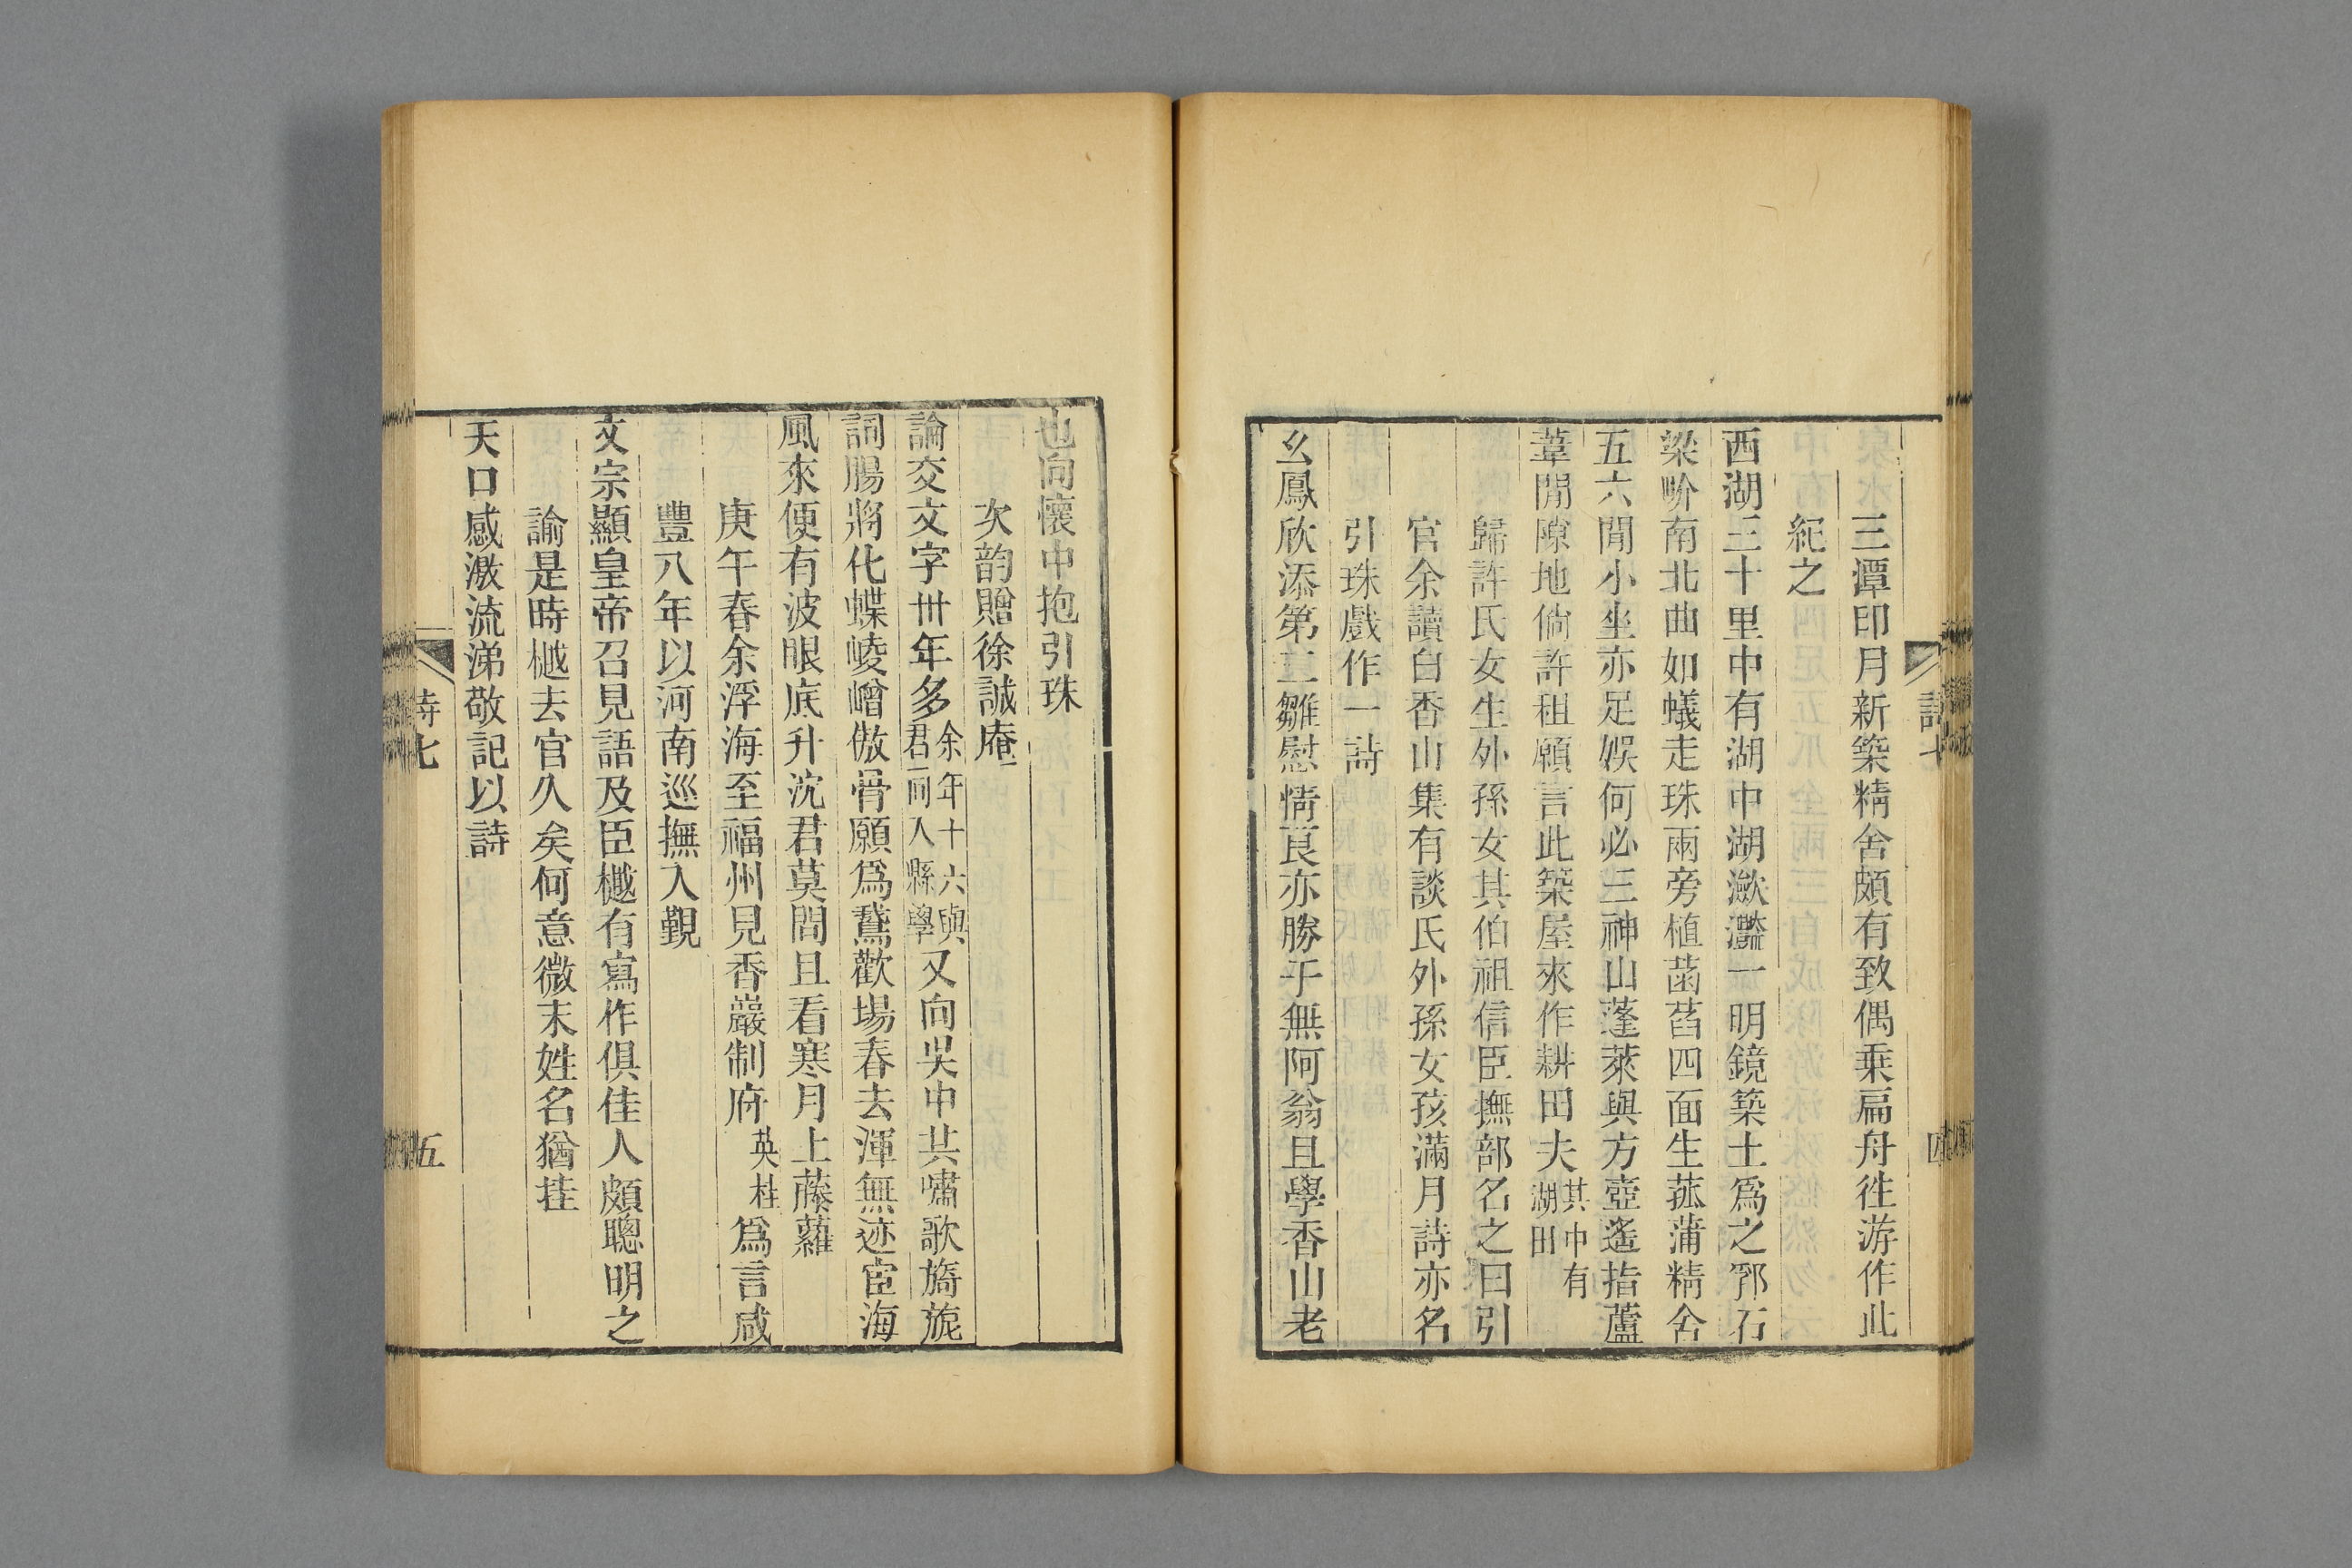 三潭印月新築精舍頗有致偶乗扁舟徃游作此
紀之
西湖三十里中有湖中湖瀲灩一明鏡築土爲之郛石
梁呀南北曲如蟻走珠兩旁植菡萏四面生菰蒲精舍
五六閒小坐亦足娛何必三神山蓬萊與方壺遙指蘆
葦閒隙地倘許租願言此築屋來作耕田夫其中有湖田
歸許氏女生外孫女其伯祖信臣撫部名之曰引
官余讀白香山集有談氏外孫女孩滿月詩亦名
引珠戲作一詩
幺鳳欣添第二雛慰情良亦勝于無阿翁且學香山老
詩七
四
也向懷中抱引珠
次韵贈徐誠庵
論交文字卅年多余年十六與君同入縣學又向吳中共嘯歌旖旎
詞腸將化蝶崚嶒傲骨願爲鵞歡場春去渾無迹宦海
風來便有波眼底升沈君莫問且看寒月上藤蘿
庚午春余浮海至福州見香巖制府英桂爲言咸
豐八年以河南巡撫入覲
文宗顯皇帝召見語及臣樾有寫作俱佳人頗聰明之
諭是時樾去官久矣何意微末姓名猶挂
天口感激流涕敬記以詩
詩七
五